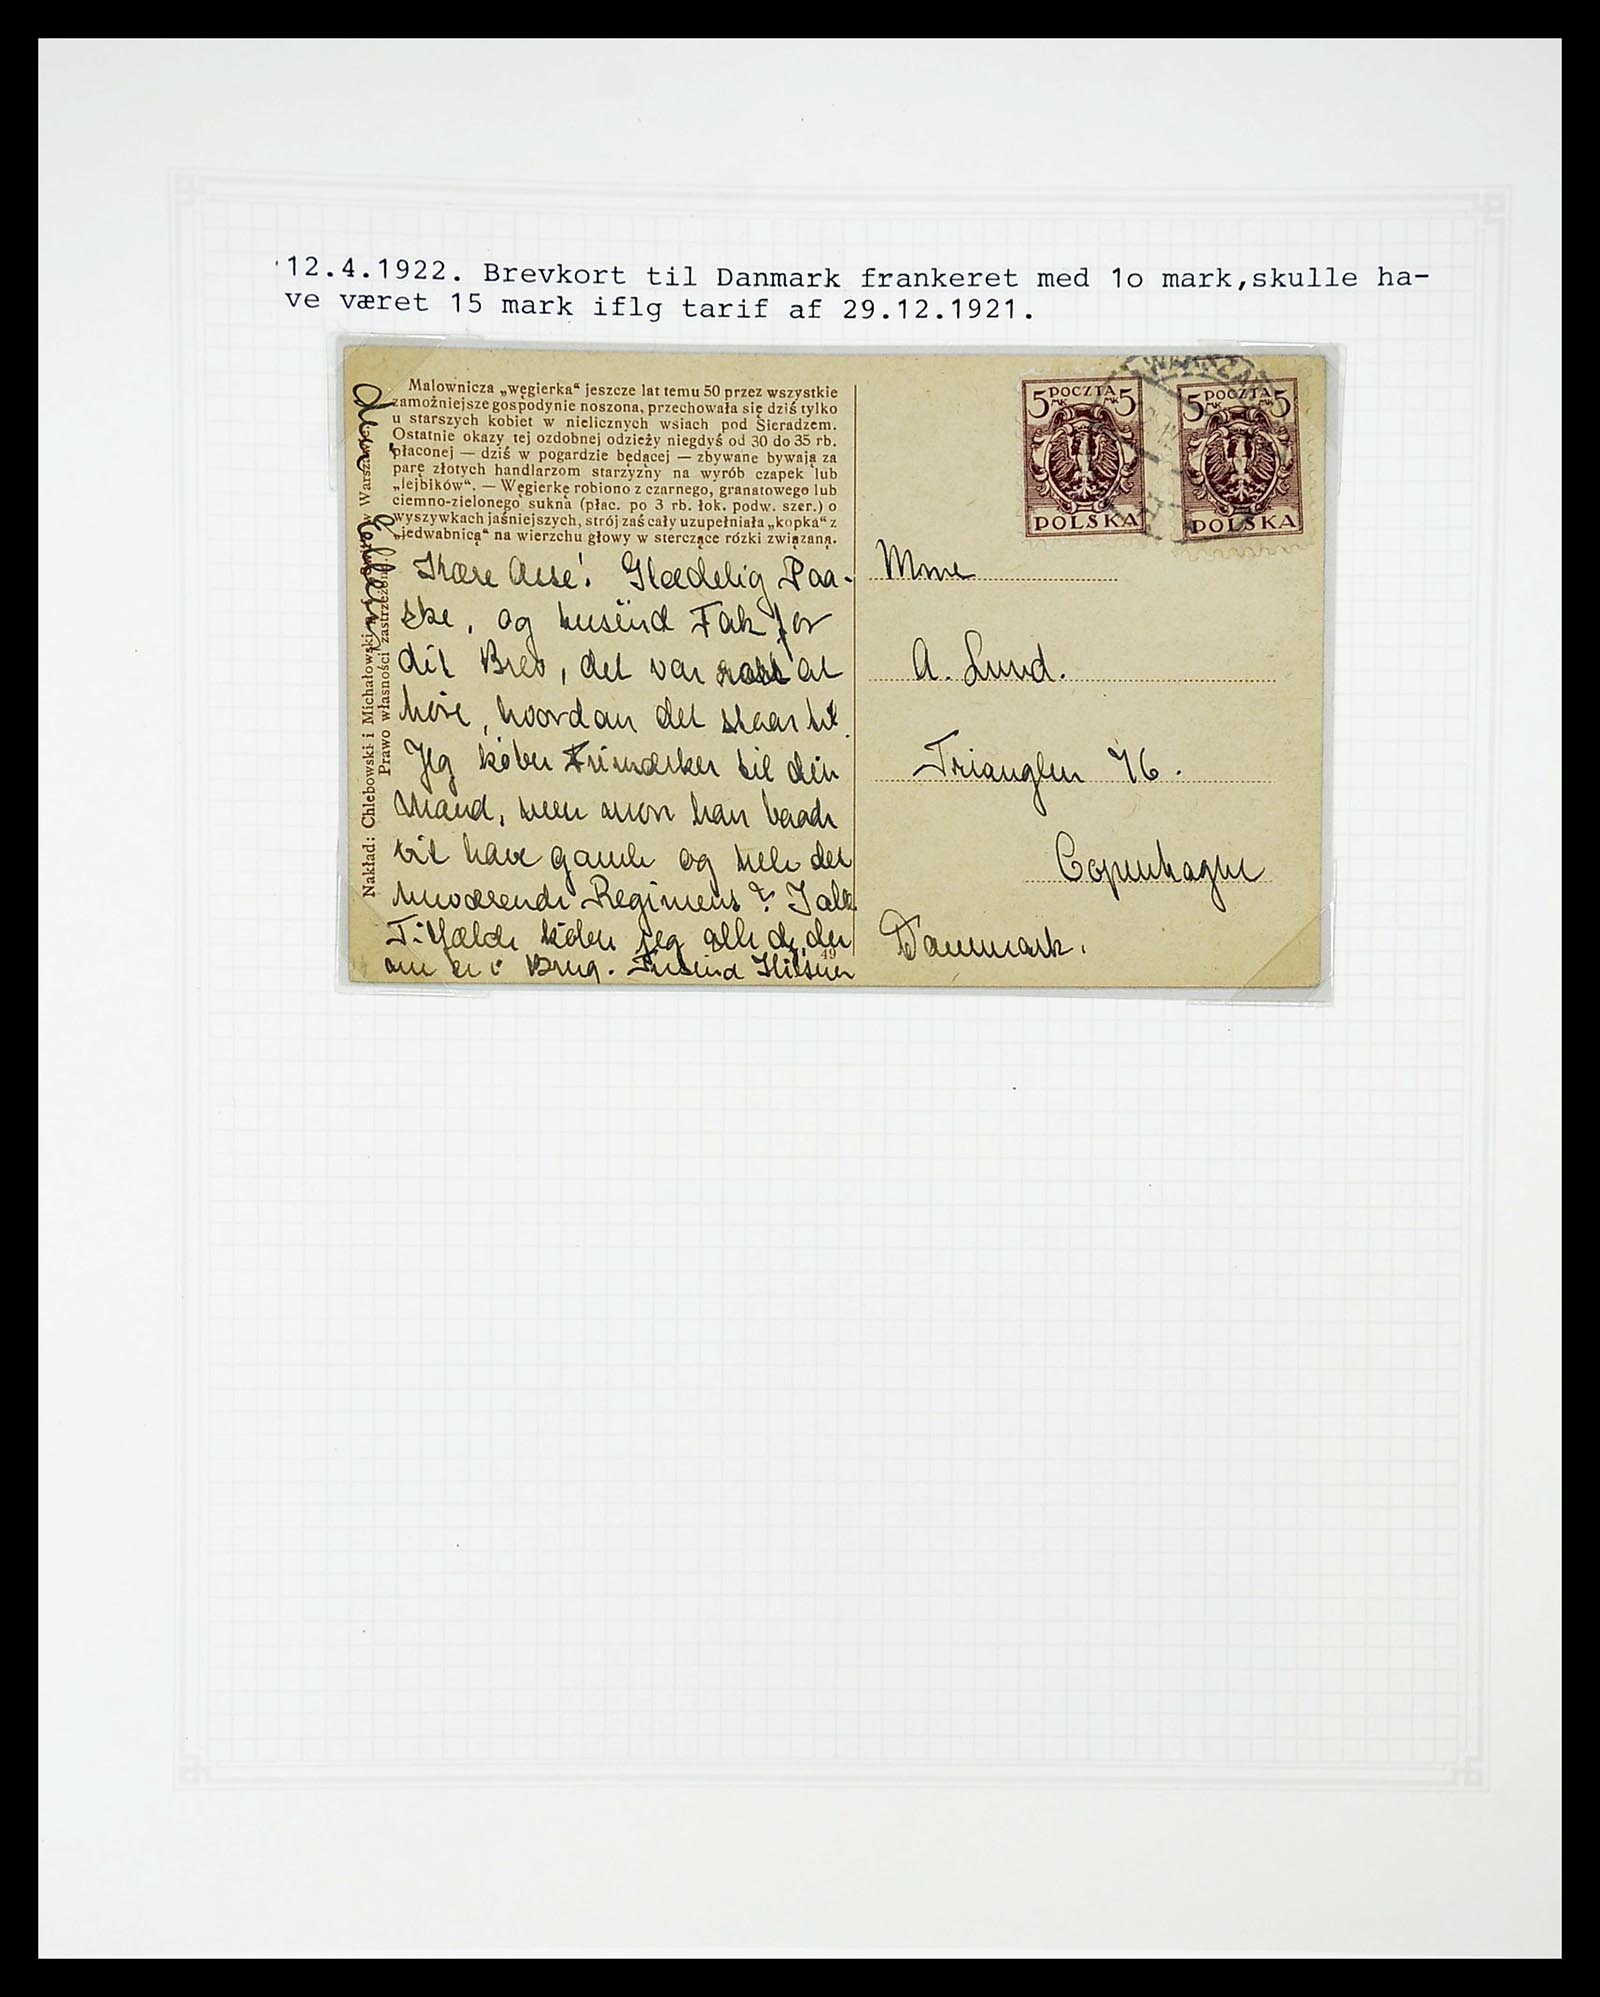 12.4.1922. Brevkort til Danmark frankeret med 1o mark,skulle ha-
ve været 15 mark iflg tarif af 29.12.1921.
Malownicza „węgierka“ jeszcze lat temu 50 przez wszystkie
zamożniejsze gospodynie noszona, przechowała się dziś tylko
u starszych kobiet w nielicznych wsiach pod Sieradzem.
Ostatnie okazy tej ozdobnej odzieży niegdyś od 30 do 35 rb.
płaconej — dziś w pogardzie będącej — zbywane bywają za
parę złotych handlarzom starzyzny na wyrób czapek lub
„lejbików“. — Węgierkę robiono z czarnego, granatowego lub
ciemno-zielonego sukna (płac. po 3 rb. łok. podw. szer.) o
wyszywkach jaśniejszych, strój zaś cały uzupełniała „kopka“ z
„jedwabnicą“ na wierzchu głowy w sterczące rózki związaną.
Nakład: Chlebowski i Michałowski w Warszawie
Prawo własności zastrzeżone.
Kære Aase! Glædelig Paa-
ske, og tusind Tak for
dit Brev, det var rart at
høre, hvordan det staar til.
Jeg køber Frimærker til din
Mand, men mon han baade
vil have gamle og hele det
nuværende Regimens? I alle
Tilfælde køber jeg alle de, der
nu er i Brug. Tusind Hilsner
49
5 POCZTA 5
MK MK
POLSKA
5 POCZTA 5
MK MK
POLSKA
WARSZAWA
Mme
A. Lund.
Trianglen 76.
Copenhague
Danmark.